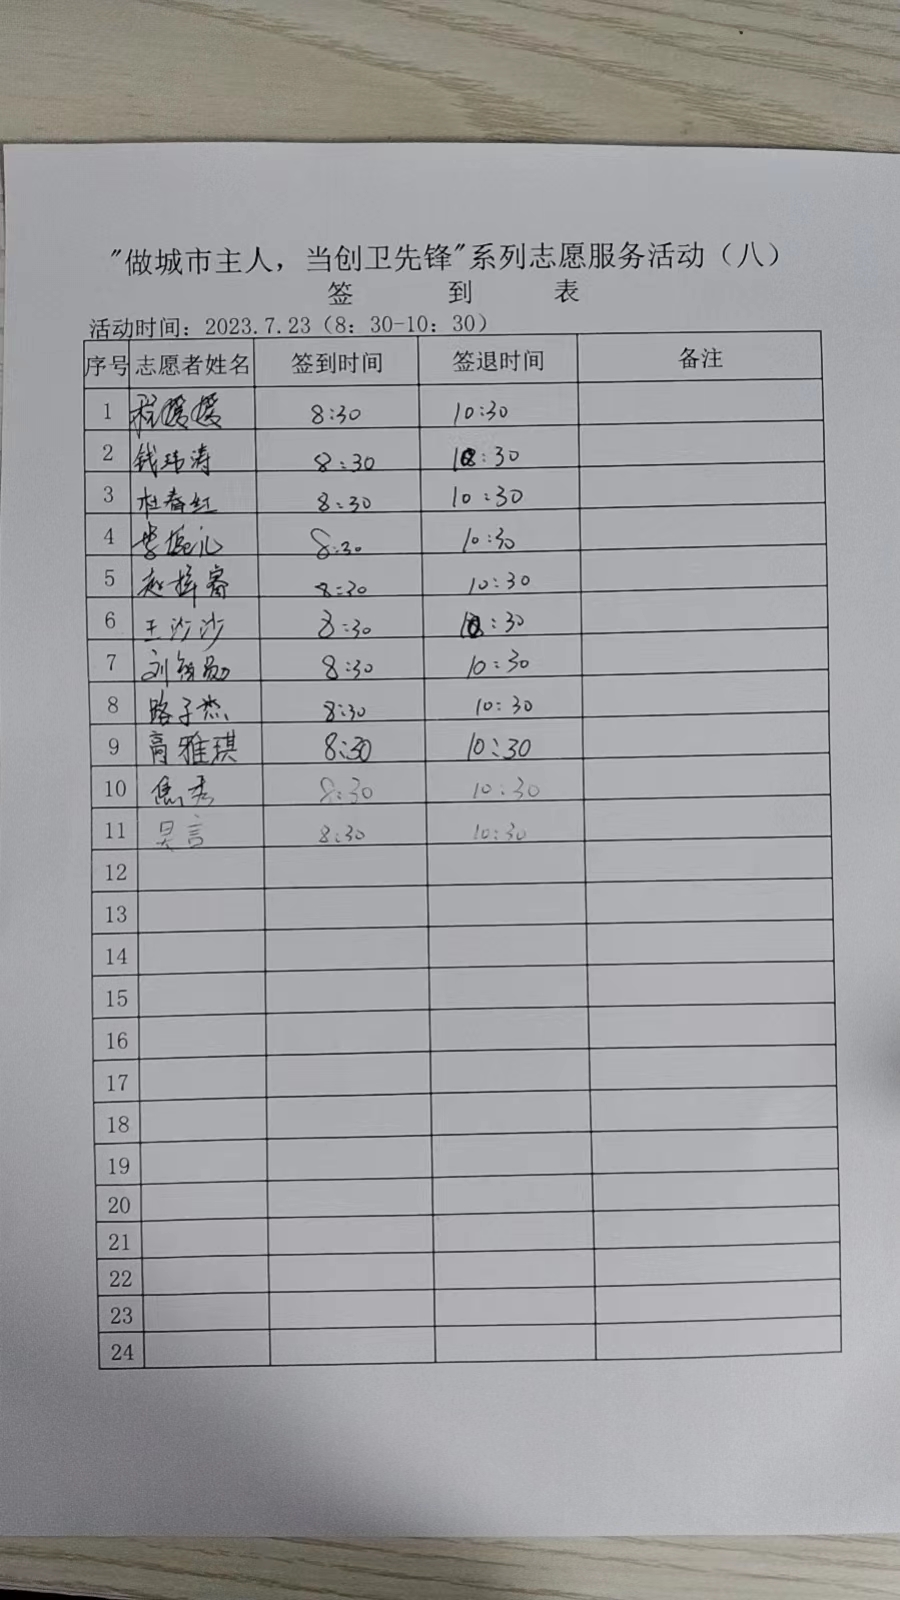 "做城市主人，当创卫先锋"系列志愿服务活动（八）
签 到 表
活动时间：2023.7.23（8：30-10：30）
序号 志愿者姓名 签到时间 签退时间 备注
1 程媛媛 8:30 10:30
2 钱玮涛 8:30 10:30
3 杜春红 8:30 10:30
4 8:30 10:30
5 赵梓睿 8:30 10:30
6 王沙沙 8:30 10:30
7 8:30 10:30
8 路子杰 8:30 10:30
9 高雅琪 8:30 10:30
10 焦秀 8:30 10:30
11 昊言 8:30 10:30
12
13
14
15
16
17
18
19
20
21
22
23
24